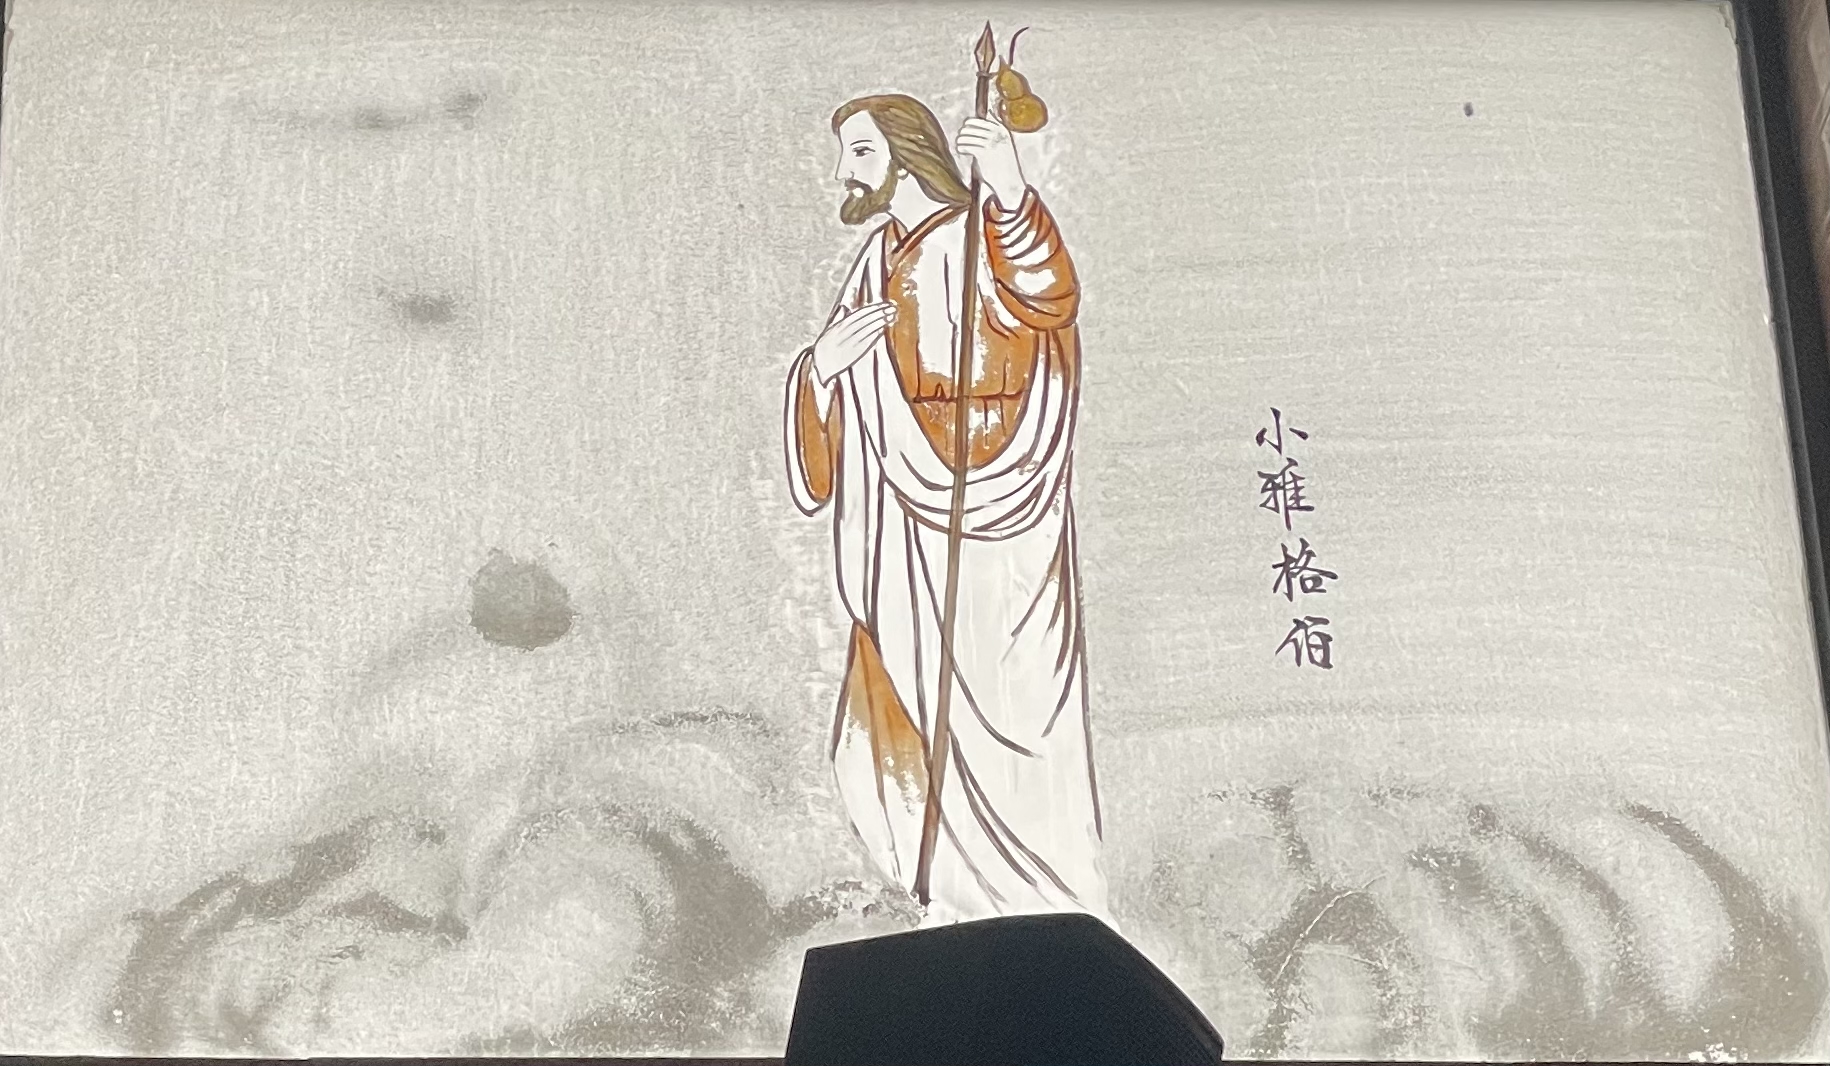 小雅格伯